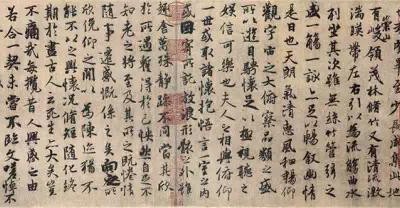 至少長咸集此地
有崇山峻領茂林脩竹又有清流激
湍暎帶左右引以為流觴曲水
列坐其次雖無絲竹管弦之
盛一觴一詠亦足以暢敘幽情
是日也天朗氣清惠風和暢仰
觀宇宙之大俯察品類之盛
所以遊目騁懷足以極視聽之
娛信可樂也夫人之相與俯仰
一世或取諸懷抱悟言一室之內
或因寄所託放浪形骸之外雖
趣舍萬殊靜躁不同當其欣
於所遇暫得於己怏然自足不
知老之將至及其所之既惓情
隨事遷感慨係之矣向之所
欣俛仰之閒以為陳迹猶不
能不以之興懷況脩短隨化終
期於盡古人云死生亦大矣豈
不痛哉每攬昔人興感之由
若合一契未嘗不臨文嗟悼不